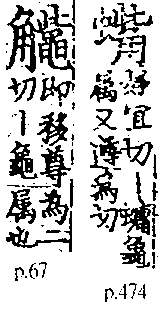 宜切丨蠵龜
屬又遵為切
p.474
即移尊為二
切丨龜属也
p.67